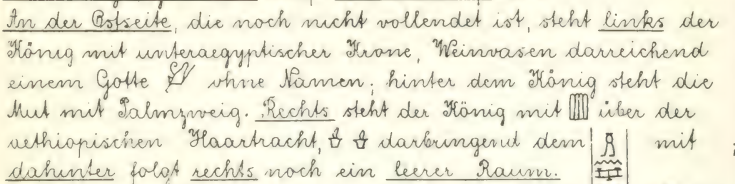 An der Ostseite, die noch nicht vollendet ist, steht links der
König mit unteraegyptischer Krone, Weinvasen darreichend
einem Gotte ohne Namen; hinter dem König steht die
Mut mit Palmzweig. Rechts steht der König mit über der
aethiopischen Haartracht, darbringend dem mit
dahinter folgt rechts noch ein leerer Raum.